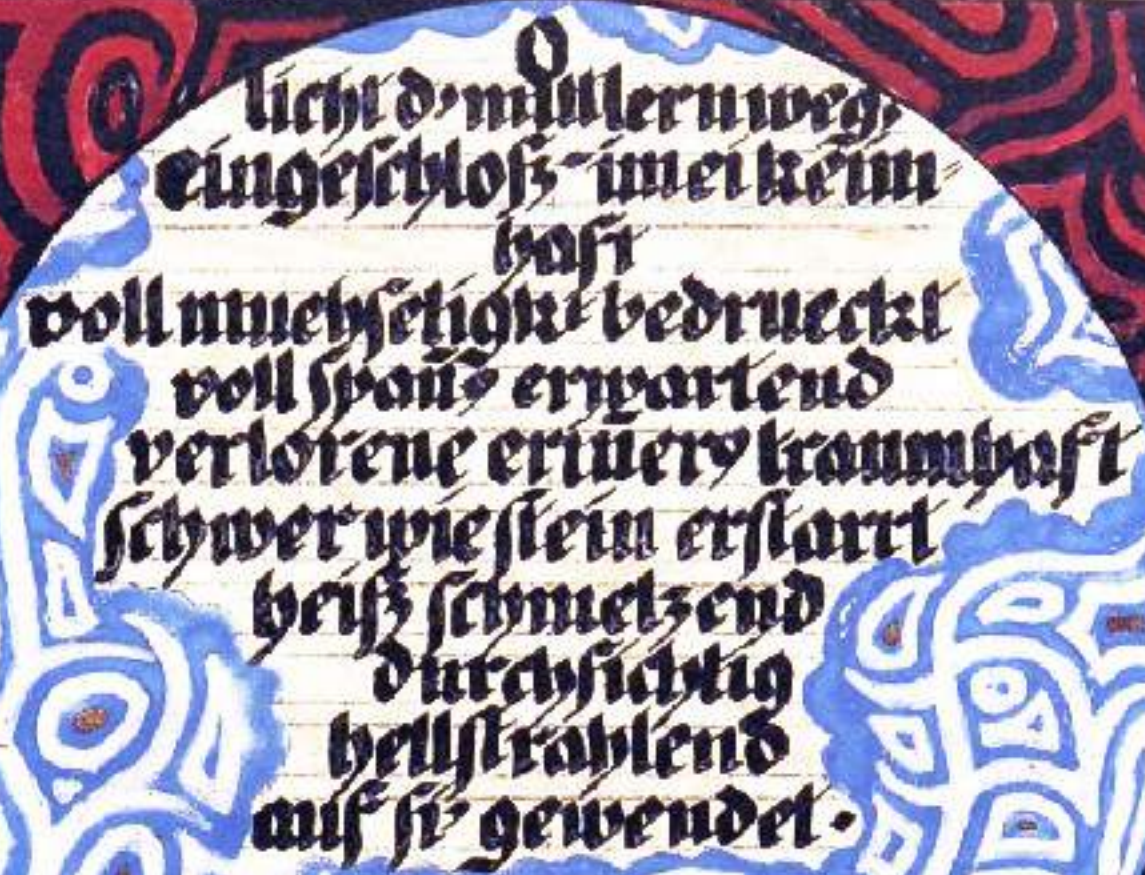 O
licht d' mittlern weg,
eingeschloß- im ei keim=
haft
voll muehseligk' bedrueckt
voll spañ' erwartend
verlorene eriñer' traumhaft
schwer wie stein erstarrt
heiß schmelzend
durchsichtig
hellstrahlend
auf si' gewendet.